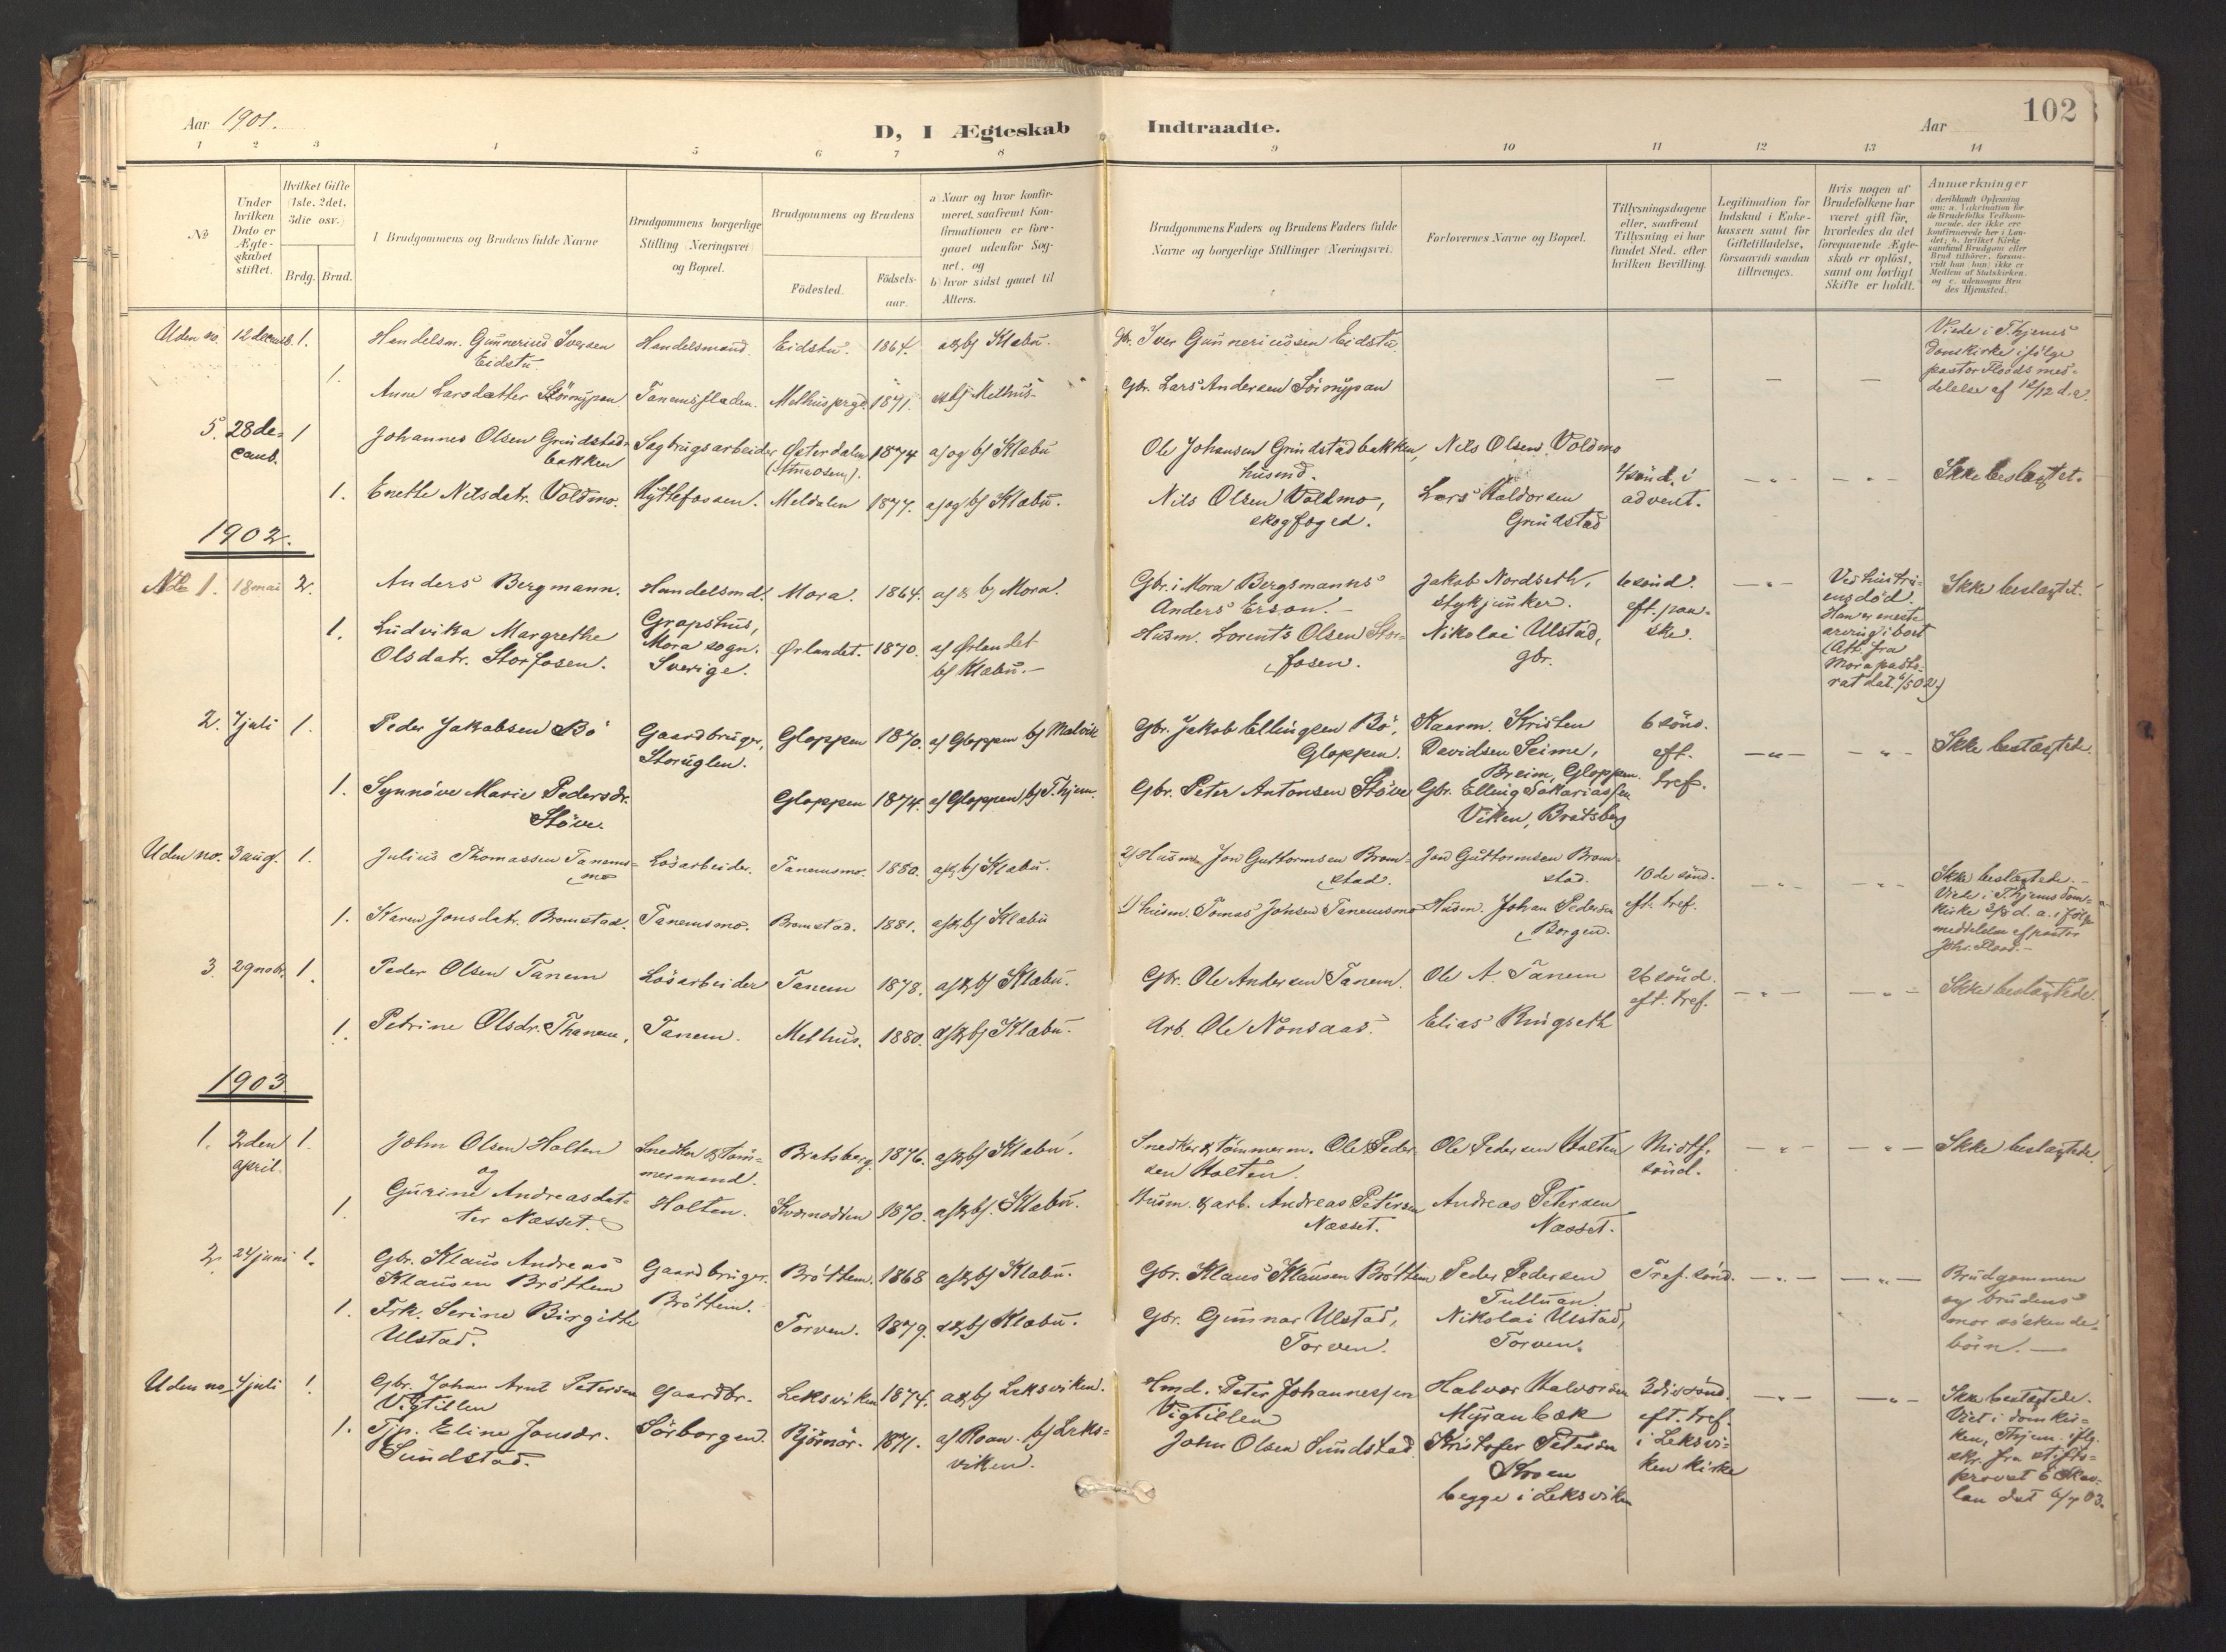 102
Aar 1901.
D, I Ægteskab Indtraadte.
Aar
1 2 3 4 5 6 7 8 9 10 11 12 13 14
No
Under hvilken Dato er Ægteskabet stiftet.
Hvilket Gifte (1ste, 2det, 3die osv.)
Brdg. Brud.
1 Brudgommens og Brudens fulde Navne
Brudgommens borgerlige Stilling (Næringsvei) og Bopæl.
Brudgommens og Brudens
Födested.
Födsels-aar.
a) Naar og hvor konfirmeret, saafremt Konfirmationen er foregaaet udenfor Sognet, og
b) hvor sidst gaaet til Alters.
Brudgommens Faders og Brudens Faders fulde Navne og borgerlige Stillinger (Næringsvei).
Forlovernes Navne og Bopæl.
Tillysningsdagene eller, saafremt Tillysning ei har fundet Sted, efter hvilken Bevilling.
Legitimation for Indskud i Enkekassen samt for Giftetilladelse, forsaavidt saadan tiltrænges.
Hvis nogen af Brudefolkene har været gift för, hvorledes da det foregaaende Ægteskab er oplöst, samt om lovligt Skifte er holdt.
Anmærkninger
Uden no. 12 decemb. 1. Handelsm. Gunnerius Iversen Eidstu. Handelsmand Eidstu. 1864. a & b) Klæbu. Gbr. Iver Gunneriusen Eidstu. Viede i T.hjems Domkirke ifölge pastor Floods meddelelse af 12/12 d.a.
1. Anne Larsdatter Störmypan Tanemsfladen. Melhus prgd. 1871. a & b) Melhus. Gbr. Lars Andersen Sörmypan — — —
5. 28 decemb. 1 Johannes Olsen Grindstadbakken Sagbrugsarbeider Østerdalen 1874 a) og b) Klæbu Ole Johansen Grindstadbakken, husmd. Nils Olsen Voldmo 4 sönd. i advent. — " — — " — Ikke beslægtet.
1. Enette Nilsdatr. Voldmo. Hyttefossen. Meldalen 1877. a) og b) Klæbu. Nils Olsen Voldmo, skogfoged. Lars Haldorsen Grindstad
1902.
No 1. 18 mai 2. Anders Bergmann. Handelsmd. Mora. 1864. a) & b) Mora. Gbr. i Mora Bergsmanns Anders Erson. — Jakob Nordseth, stykjunker. 6 sönd. eft. paaske. — " — Ved hustruens död. Han er eneste arving i boet (Att. fra Mora pastorat dat. 6/5 02.) Ikke beslægtet.
1. Ludvika Margrethe Olsdatr. Storfosen. Gropshus, Mora sogn. Sverige. Ørlandet. 1870. a) Ørlandet b) Klæbu. — Husm. Lorents Olsen Storfosen. Nikolai Ulstad, gbr.
2. 7 juli 1. Peder Jakobsen Bö Gaardbruger, Storuglen. Gloppen 1870. a) Gloppen b) Malvik Gbr. Jakob Ellingsen Bö, Gloppen. Kaarm. Kristen Davidsen Seime, Breim, Gloppen. 6 sönd. eft. tref. — " — — " — Ikke beslægtede.
1. Synnöve Marie Pedersdr. Stöve. Gloppen 1874. a) Gloppen b) T.hjem. Gbr. Peter Antonsen Stöve Gbr. Elling Sakariassen Viken, Bratsberg
Uden no. 3 aug. 1. Julius Thomassen Tanemsmo Lösarbeider. Tanemsmo. 1880. a & b) Klæbu. 2) Husm. Jon Guttormsen Bromstad. Jon Guttormsen Bromstad. 10de sönd. eft. tref. — " — — " — Ikke beslægtede. — Viede i T.hjems domkirke 3/8 d. a. ifölge meddelelse af pastor Joh. Flood. —
1. Karen Jonsdatr. Bromstad. Tanemsmo. Bromstad. 1881. a & b) Klæbu 1) Husm. Tomas Johsen Tanemsmo Husm. Johan Pedersen Borgen.
3. 29 novbr. 1. Peder Olsen Tanem Lösarbeider Tanem 1878. a) & b) Klæbu. Gbr. Ole Andersen Tanem. Ole A. Tanem 26 sönd. eft. tref. — " — — " — Ikke beslægtede.
1. Petrine Olsdr. Thanem, Tanem. Melhus. 1880. a) & b) Klæbu. Arb. Ole Nonsaas. Elias Ringseth
1903.
1. 2den april. 1. John Olsen Holten og Snedker & tömmermand. Bratsberg. 1876. a) & b) Klæbu. Snedker & tömmerm. Ole Pedersen Holten. Ole Pedersen Holten Midtf. sönd. — " — — " — Ikke beslægtede.
1. Gurine Andreasdatter Næsset. Holten. 1870. a) & b) Klæbu. Husm. & arb. Andreas Petersen Næsset. Andreas Petersen Næsset.
2. 24 juni 1. Gbr. Klaus Andreas Klausen Bröttem Gaardbruger. Bröttem. Bröttem. 1868 a) & b) Klæbu. Gbr. Klaus Klausen Bröttem Peder Pedersen Tulluan. Tref. sönd. — " — — " — Brudgommen og brudens mor söskendebörn. —
1. Frk. Serine Birgitte Ulstad. Torven. 1879. a & b) Klæbu. Gbr. Gunnar Ulstad, Torven. Nikolai Ulstad, Torven.
Uden no. 4 juli 1. Gbr. Johan Arnt Petersen Vigtillen Gaardbr. Leksviken 1874. a & b) Leksviken. Hmd. Peter Johannessen Vigtillen Halvor Halvorsen Myranbæk 3die sönd. eft. tref. i Leksviken kirke — " — — " — Ikke beslægtede. Viet i domkirken, Thjem. iflg. skr. fra stiftsprovst dat 6/7 03.
1. Tjp. Eline Jonsdr. Sundstad. Sörborgen. Björnör. 1871. a) Roan. b) Leksviken. John Olsen Sundstad Kristofer Petersen begge i Leksviken